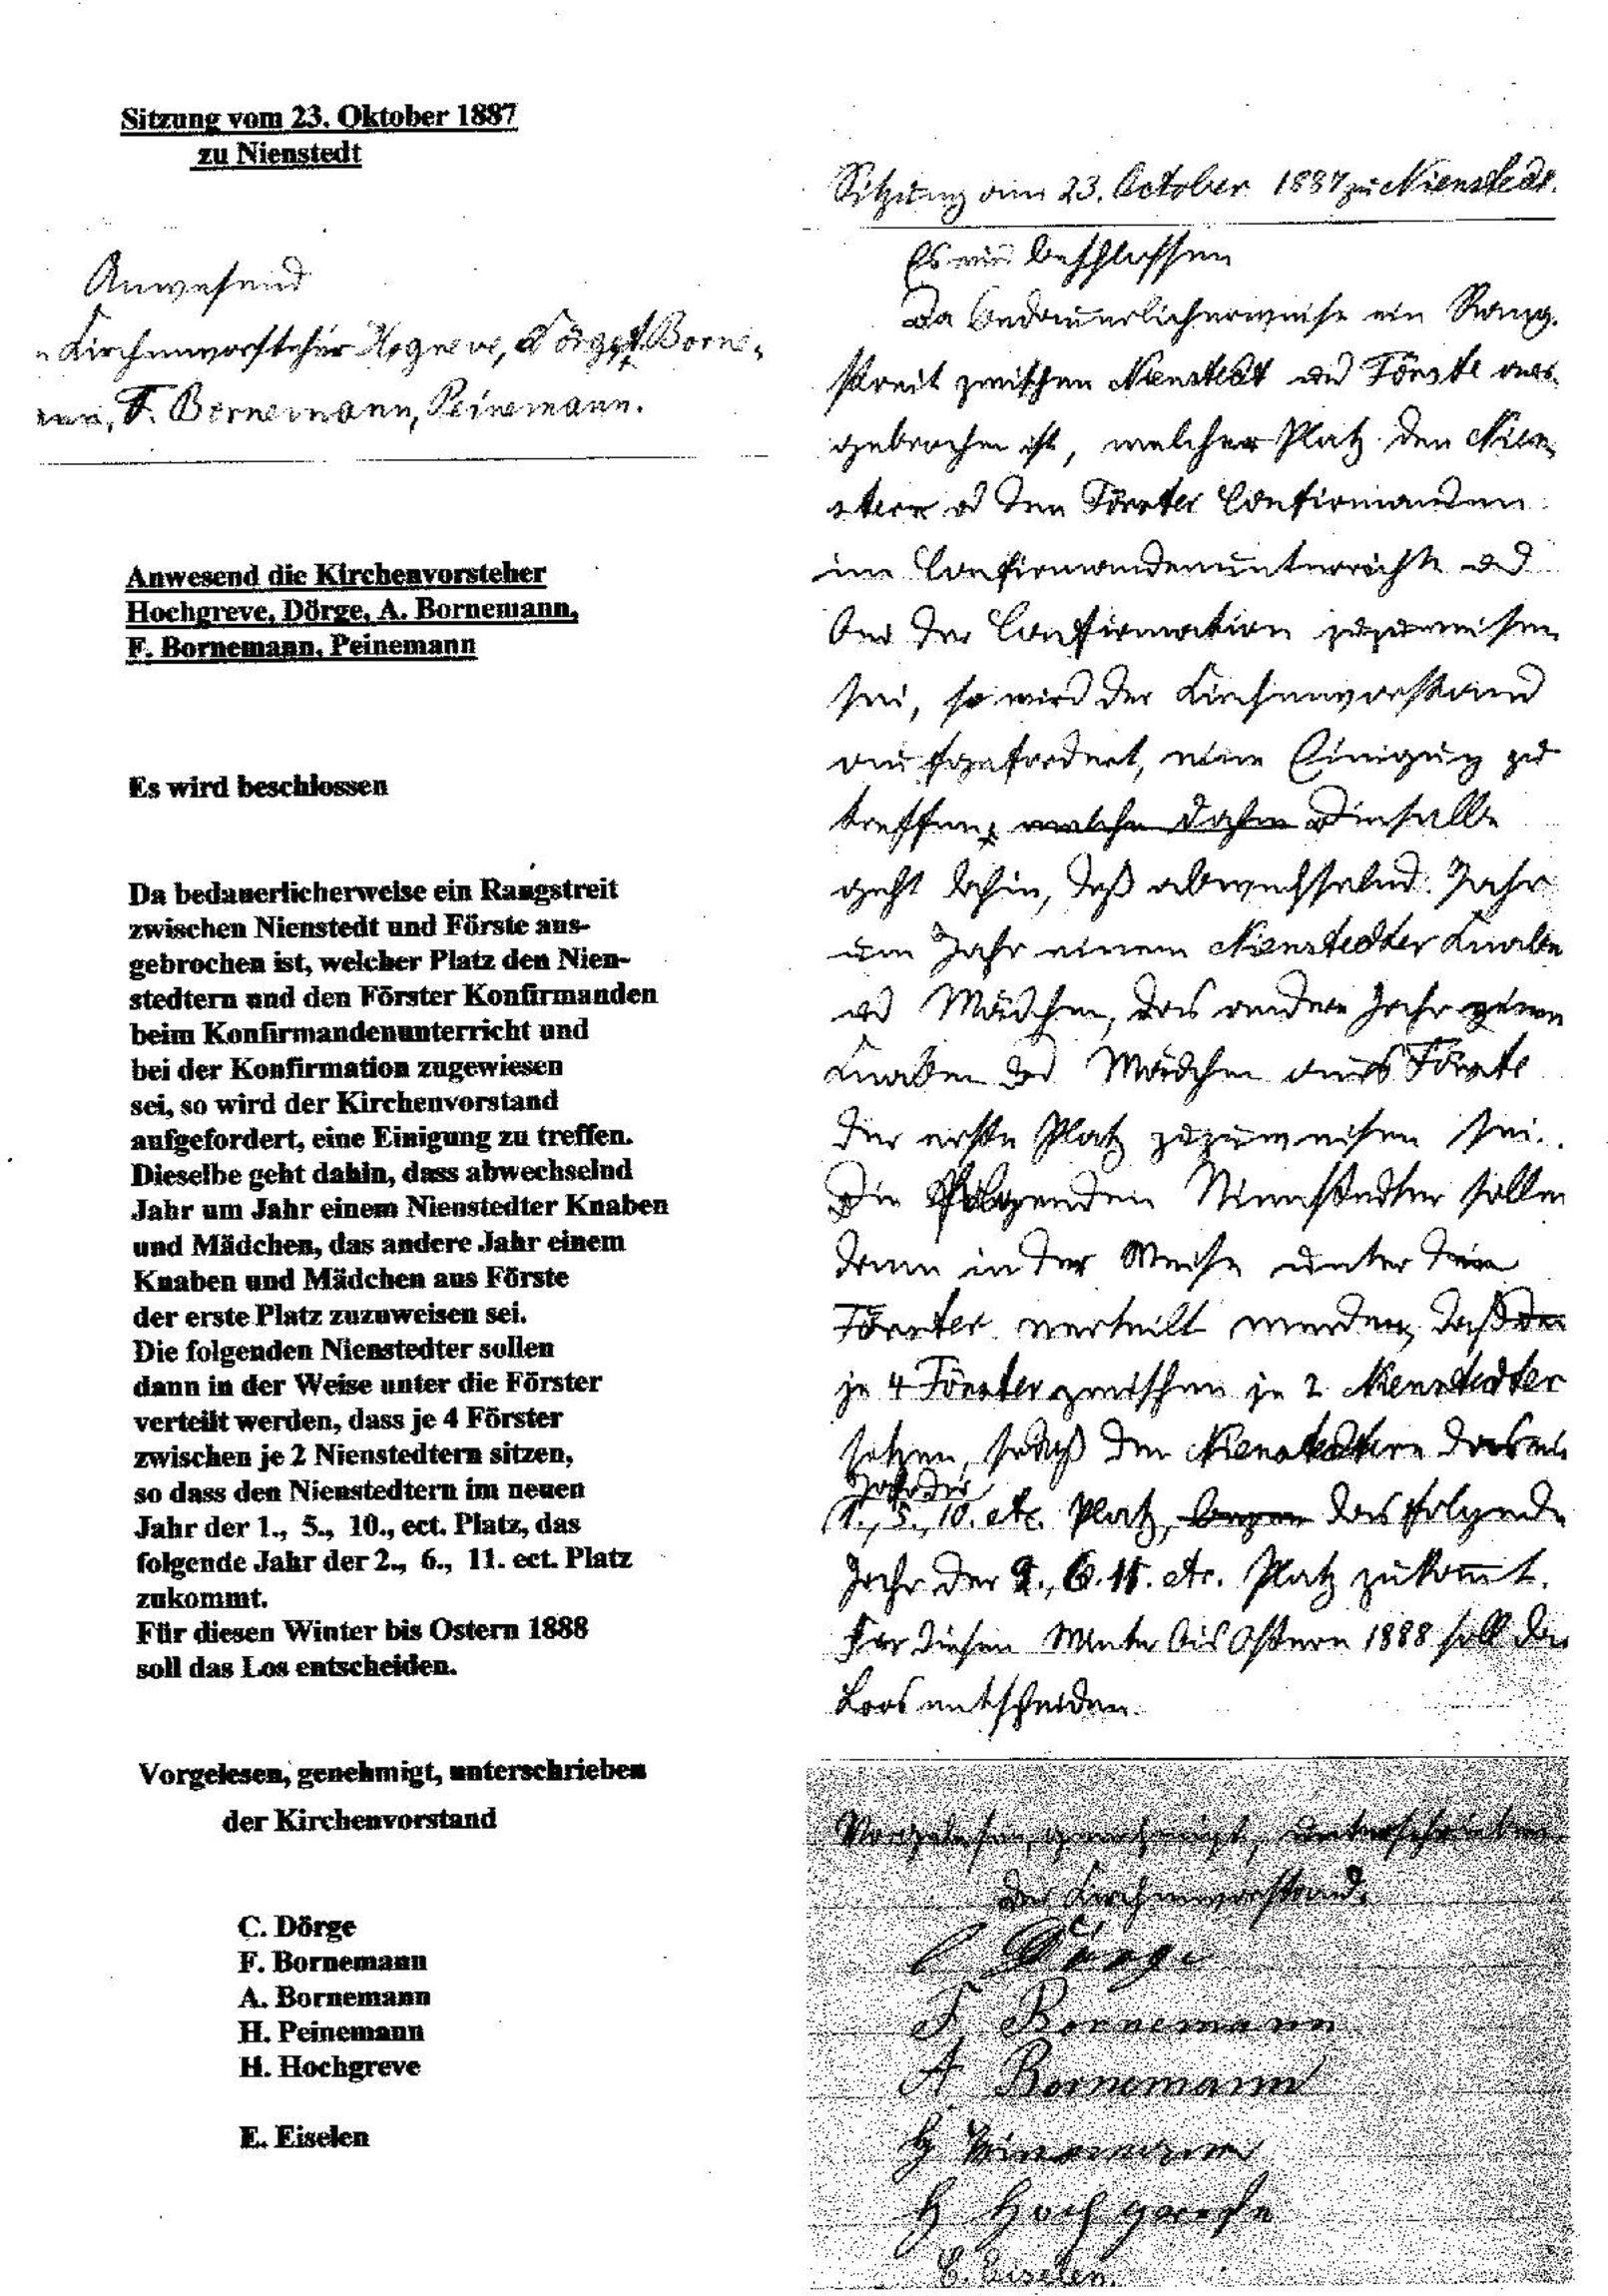 Sitzung vom 23. Oktober 1887
zu Nienstedt
Anwesend
Kirchenvorsteher Hogreve, Dörge, A. Borne-
mann, F. Bornemann, Peinemann.
Anwesend die Kirchenvorsteher
Hochgreve, Dörge, A. Bornemann,
F. Bornemann, Peinemann
Es wird beschlossen
Da bedauerlicherweise ein Rangstreit
zwischen Nienstedt und Förste aus-
gebrochen ist, welcher Platz den Nien-
stedtern und den Förster Konfirmanden
beim Konfirmandenunterricht und
bei der Konfirmation zugewiesen
sei, so wird der Kirchenvorstand
aufgefordert, eine Einigung zu treffen.
Dieselbe geht dahin, dass abwechselnd
Jahr um Jahr einem Nienstedter Knaben
und Mädchen, das andere Jahr einem
Knaben und Mädchen aus Förste
der erste Platz zuzuweisen sei.
Die folgenden Nienstedter sollen
dann in der Weise unter die Förster
verteilt werden, dass je 4 Förster
zwischen je 2 Nienstedtern sitzen,
so dass den Nienstedtern im neuen
Jahr der 1., 5., 10., ect. Platz, das
folgende Jahr der 2., 6., 11. ect. Platz
zukommt.
Für diesen Winter bis Ostern 1888
soll das Los entscheiden.
Vorgelesen, genehmigt, unterschrieben
der Kirchenvorstand
C. Dörge
F. Bornemann
A. Bornemann
H. Peinemann
H. Hochgreve
E. Eiselen
Sitzung am 23. October 1887 zu Nienstedt.
Es wird beschlossen
Da bedauerlicherweise ein Rang-
streit zwischen Nienstedt und Förste aus-
gebrochen ist, welcher Platz den Nien-
stern und den Förster Confirmanden
im Confirmandenunterrichte und
bei der Confirmation zuzuweisen
sei, so wird der Kirchenvorstand
aufgefordert, eine Einigung zu
treffen, welche dahin Dieselbe
geht dahin, daß abwechselnd Jahr
um Jahr einem Nienstedter Knaben
und Mädchen, das andere Jahr einem
Knaben und Mädchen aus Förste
der erste Platz zuzuweisen sei.
Die folgenden Nienstedter sollen
dann in der Weise unter die
Förster verteilt werden, daß
je 4 Förster zwischen je 2 Nienstedter
sitzen, sodaß den Nienstedtern das
Jahr der
1., 5., 10. etc. Platz, das folgende
Jahr der 2., 6. 11. etc. Platz zukommt.
Für diesen Winter bis Ostern 1888 soll das
Loos entscheiden.
Vorgelesen, genehmigt, unterschrieben.
Der Kirchenvorstand.
C Dörge
F Bornemann
A Bornemann
H Peinemann
H Hochgrefe
E. Eiselen.